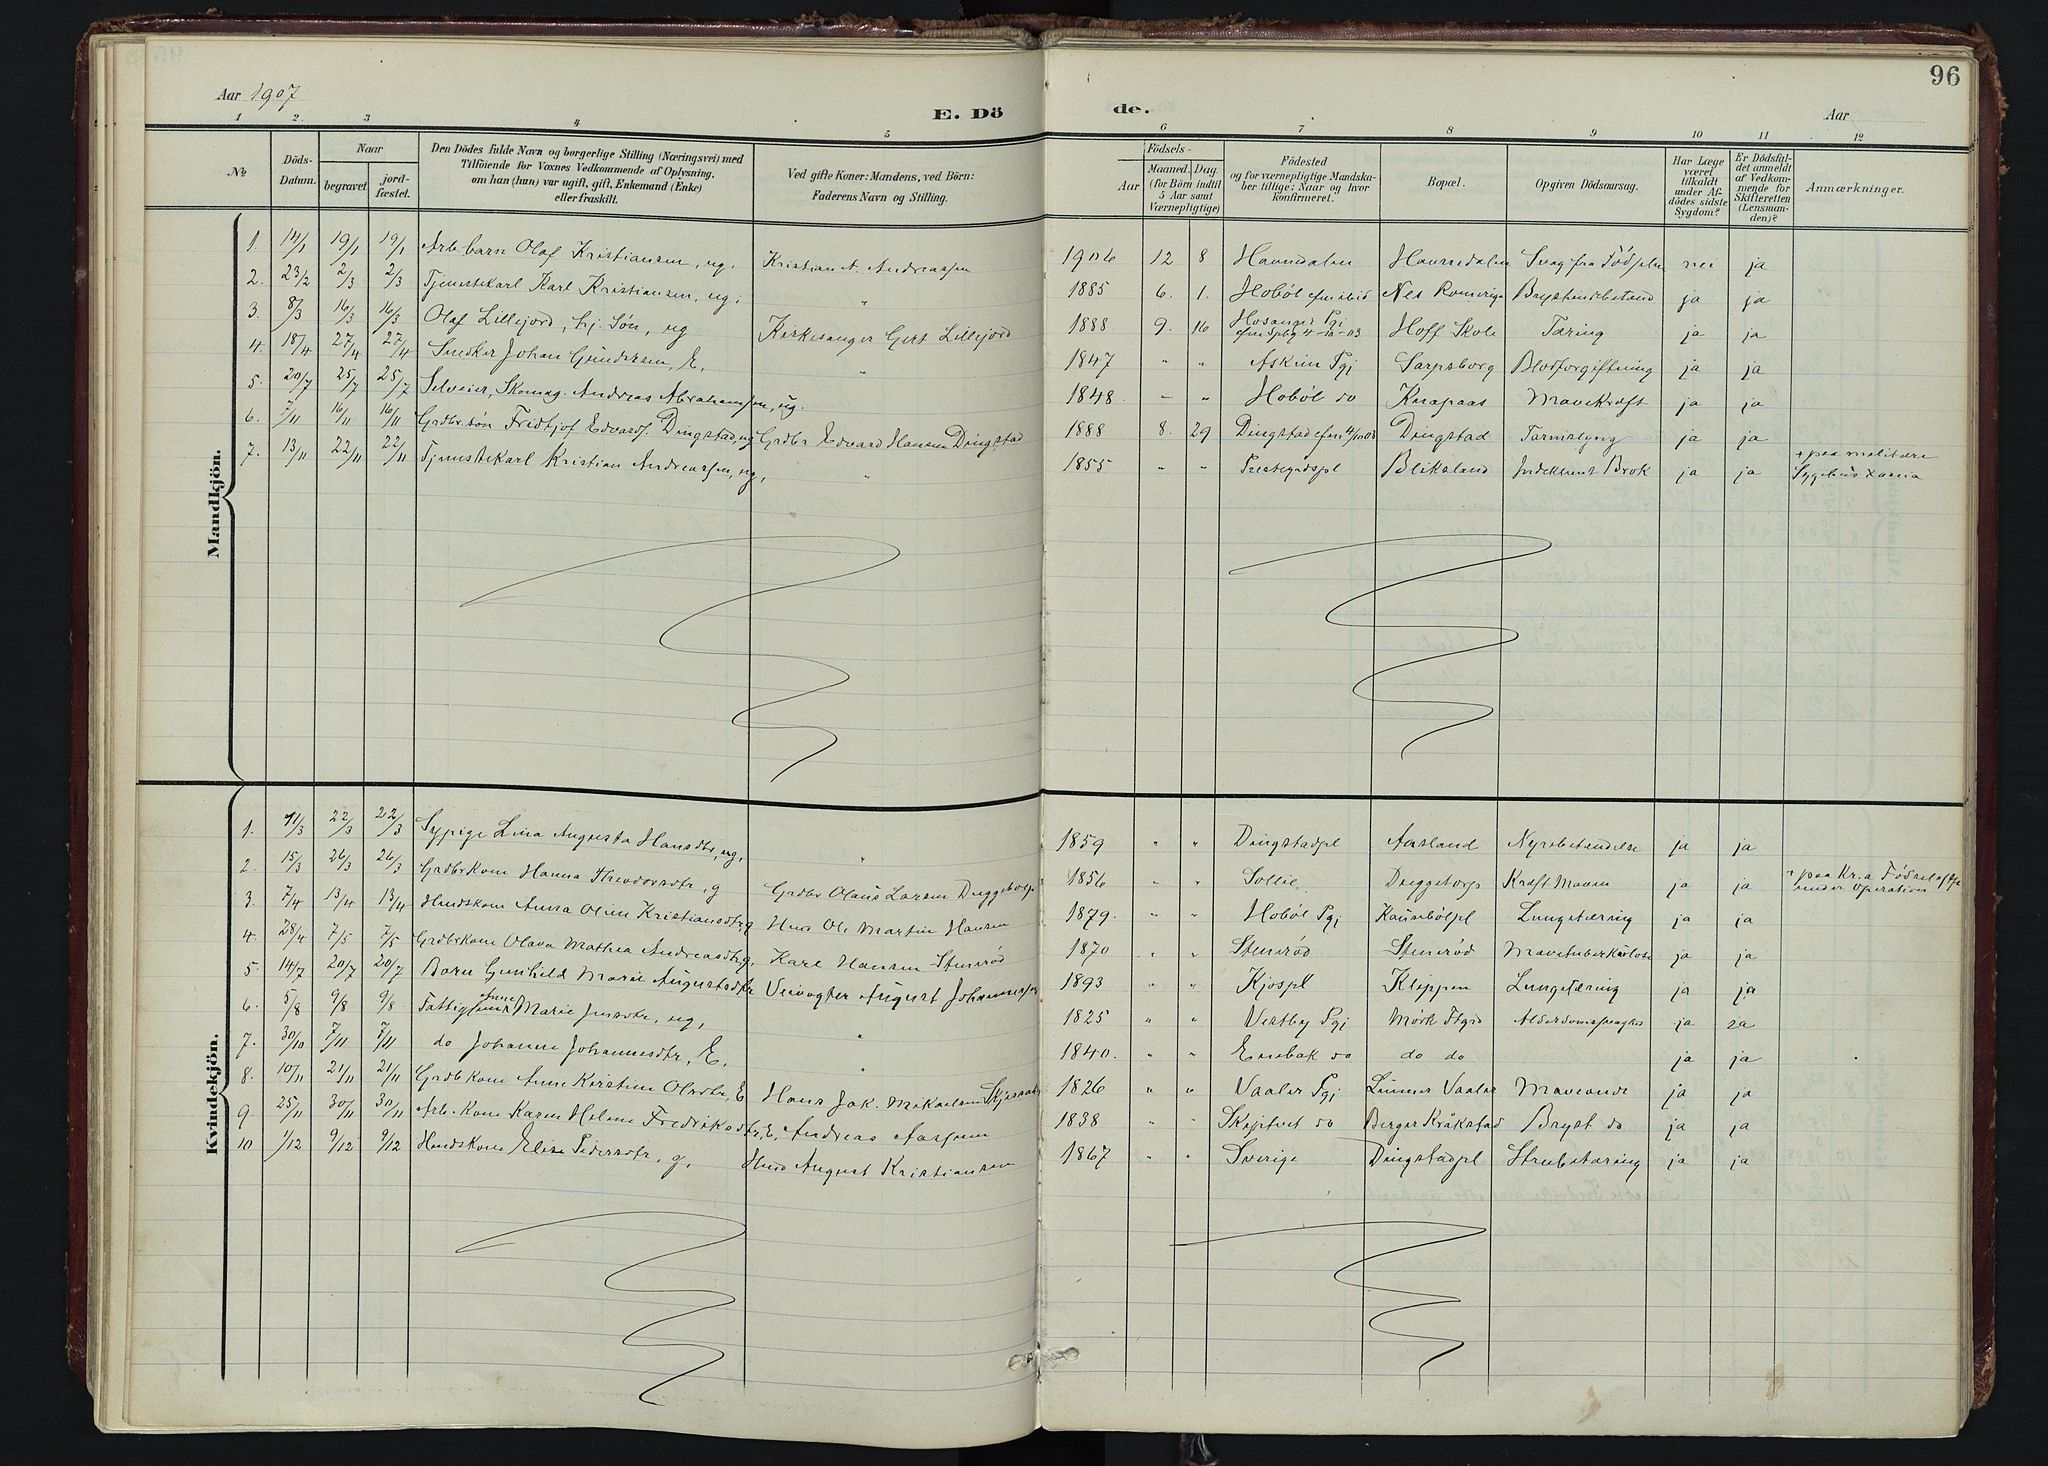 Aar 1907
E. Dö de.
Aar
96
1 2. 3 4 5 6 7 8 9 10 11 12
№
Döds-Datum.
Naar
begravet
jord-fæstet.
Den Dödes fulde Navn og borgerlige Stilling (Næringsvei) med Tilföiende for Voxnes Vedkommende af Oplysning, om han (hun) var ugift, gift, Enkemand (Enke) eller fraskilt.
Ved gifte Koner: Mandens, ved Börn: Faderens Navn og Stilling.
Födsels-
Aar
Maaned. Dag.
(for Börn indtil 5 Aar samt Værnepligtige)
Födested
og for værnepligtige Mandska-ber tillige: Naar og hvor konfirmeret.
Bopæl.
Opgiven Dödsaarsag.
Har Læge været tilkaldt under Af-dödes sidste Sygdom?
Er Dödsfal-det anmeldt af Vedkom-mende for Skifteretten (Lensman-den)?
Anmærkninger.
Mandkjön.
1. 14/1 19/1 19/1 Arb. barn Olaf Kristiansen, ug. Kristian A. Andreassen 1906 12 8 Havnedalen Havnedalen Svag fra Födseln nei ja
2. 23/2 2/3 2/3 Tjenestekarl Karl Kristiansen, ug. " 1885 6. 1. Hoböl Nes Romerige Brystindebetend ja ja
3. 8/3 16/3 16/3 Olaf Lillejord, hj. Søn, ug Kirkesanger Gert Lillejord 1888 9. 16 Hosanger Pgj Hoff Skole Tæring ja ja
4. 18/4 27/4 27/4 Snedker Johan Gundersen, E. " 1847 " " Askim Pgj Sarpsborg Blodforgiftning ja ja
5. 20/7 25/7 25/7 Selveier, Skomag. Andreas Abrahamsen, ug. 1848 " " Hoböl do Knapaas Mavekræft ja ja
6. 7/11 16/11 16/11 Grdbr.søn Fridtjof Edvards. Dingstad, ug Grdbr Edvard Hansen Dingstad 1888 8. 29 Dingstad Dingstad Tarmslyng ja ja
7. 13/11 22/11 22/11 Tjenestekarl Kristian Andreassen, ug. " 1855 " " Prestegrdspl Bliksland Indeklemt Brok ja ja + paa militære
Sygehus Xania
Kvindekjön.
1. 11/3 22/3 22/3 Sypige Lina Augusta Hansdtr, ug. " 1859 " " Dingstadpl Aasland Nyrebetendelse ja ja
2. 15/3 26/3 26/3 Grdbrkone Hanna Theodorsdtr, g Grdbr Olaus Larsen Duggetorp 1856 " " Sollie Duggetorp Kræft Maven ja ja + paa Kr.a Fødselsstif
under Operation
3. 7/4 13/4 13/4 Husmdskone Anna Olien Kristiansdtr, g Husm Ole Martin Hansen 1879. " " Hoböl Pgj Kausebölpl Lungetæring ja ja
4. 28/4 7/5 7/5 Grdbrkone Olava Mathea Andreasdtr, g. Karl Hansen Stenrød 1870 " " Stenrød Stenrød Mavetuberkulose ja ja
5. 14/7 20/7 20/7 Barn Gunhild Marie Augustadtr Veivogter August Johannessen 1893 " " Kjospl Klippen Lungetæring ja ja
6. 5/8 9/8 9/8 Anne Marie Jensdtr, ug. " 1825 " " Vestby Pgj Mörk Ftgrd Alderdomssvaghed ja ja
7. 30/10 7/11 7/11 do Johanne Johannesdtr, E. " 1840. " " Enebak do do do ja ja
8. 10/11 21/11 21/11 Grdbrkone Anne Kirstine Olsdtr, E Hans Jak. Mikaelsen 1826 " " Vaaler Pgj Vaaler Maveonde ja ja
9. 25/11 30/11 30/11 Arb. Kone Karen Helene Fredriksdtr, E, Andreas Aassen 1838 " " Skiptvet do Berger Kråkstad Bryst do ja ja
10 1/12 9/12 9/12 Husmdskone Elise Pedersdtr, g. Husm August Kristiansen 1867 " " Sverige Dingstadpl Strubetæring ja ja